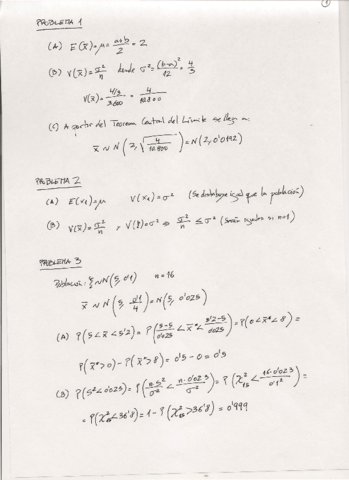 1
PROBLEMA 1
(A) E(x̄)=μ=(a+b)/2 = 2
(B) V(x̄)=σ²/n donde σ²=(b-a)²/12 = 4/3
V(x̄)=(4/3)/3600 = 4/10800
(C) A partir del Teorema Central del Límite se llega a:
x̄ ~ N(2, √(4/10800)) = N(2, 0'0192)
PROBLEMA 2
(A) E(x₁)=μ V(x₁)=σ² (Se distribuye igual que la población)
(B) V(x̄)=σ²/n, V(ξ)=σ² ⇒ σ²/n ≤ σ² (Serán iguales si n=1)
PROBLEMA 3
Población: ξ ~ N(5, 0'1) n=16
x̄ ~ N(5, 0'1/4) = N(5, 0'025)
(A) P(5<x̄<5'2) = P((5-5)/0'025 < x̄* < (5'2-5)/0'025) = P(0<x̄*<8) =
P(x̄*>0) - P(x̄*>8) = 0'5 - 0 = 0'5
(B) P(S²<0'023) = P(n·S²/σ² < n·0'023/σ²) = P(χ²₁₅ < 16·0'023/0'1²) =
= P(χ²₁₅<36'8) = 1 - P(χ²₁₅>36'8) = 0'999